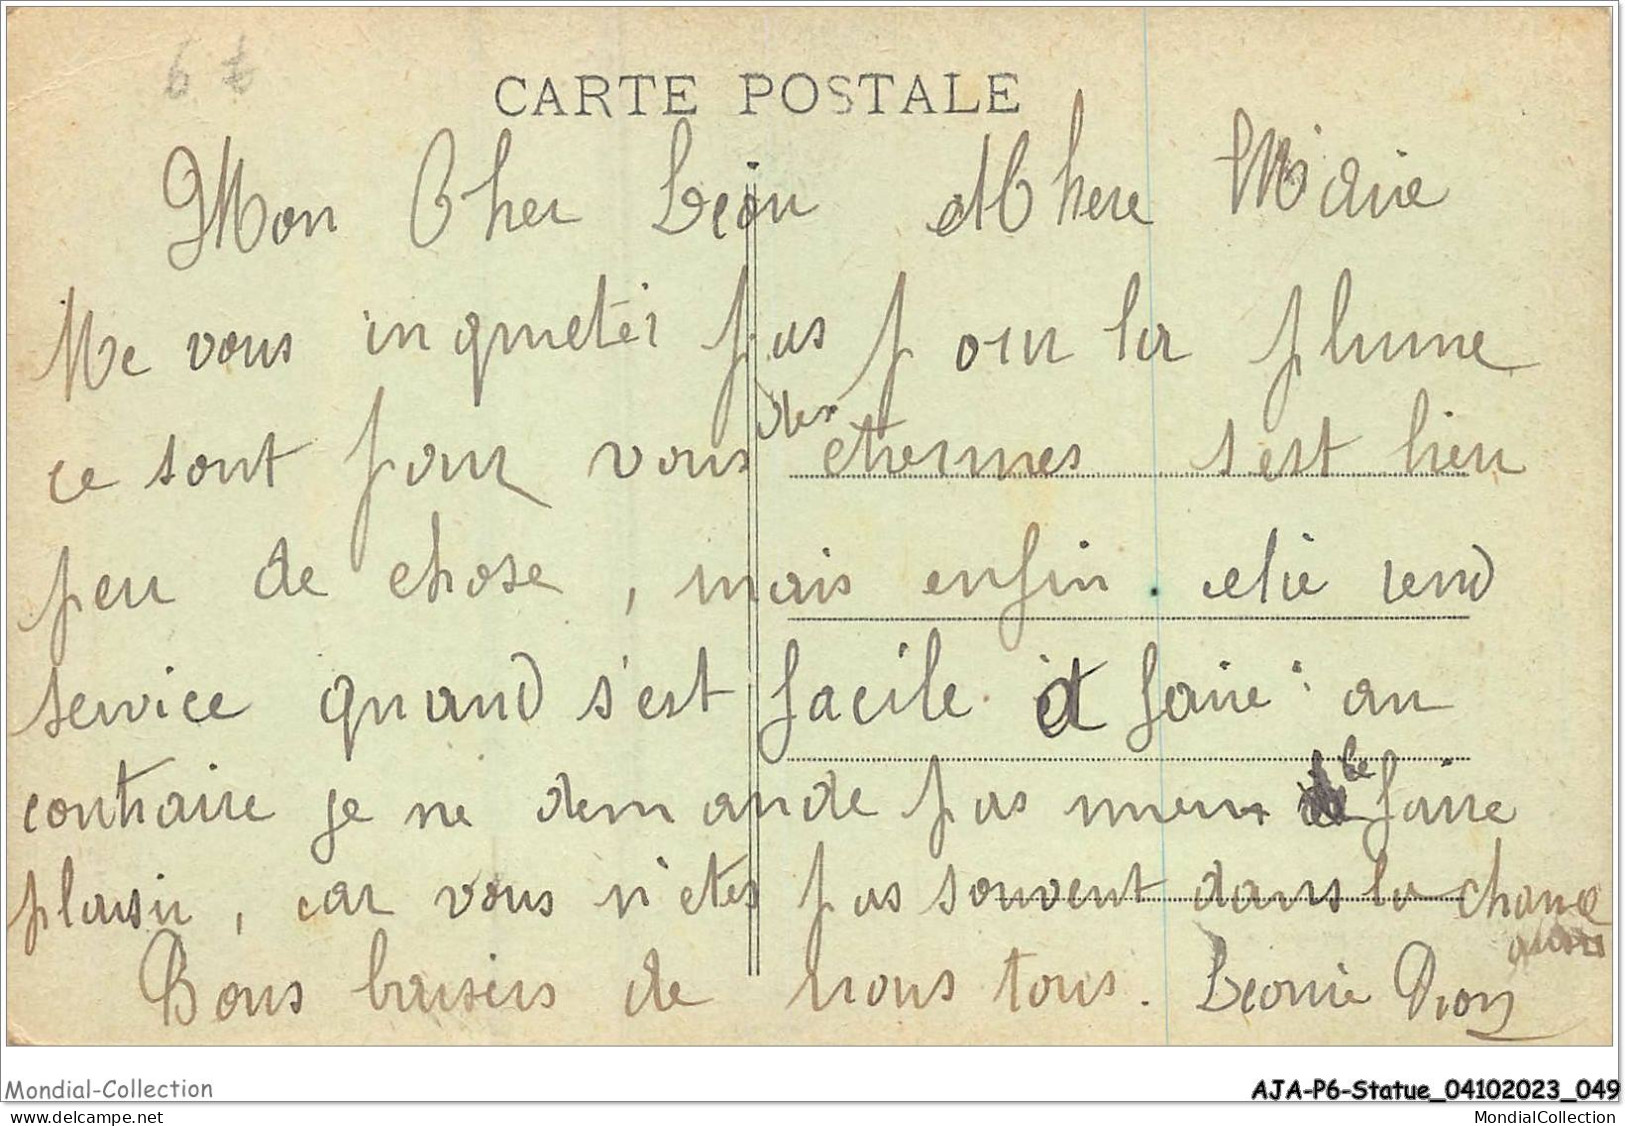 6 t
CARTE POSTALE
Mon Cher Leon et Chere Marie
Ne vous inquieter pas pour la plume
ce sont pour vous des etrennes s'est bien
peu de chose, mais enfin. elie rend
service quand s'est facile a faire : au
contraire je ne demande pas mieux le faire
plaisir, car vous n'etes pas souvent dans la chance
aussi
Bons baisers de nous tous. Leonie Dion
Mondial-Collection
AJA-P6-Statue_04102023_049
www.delcampe.net
MondialCollection